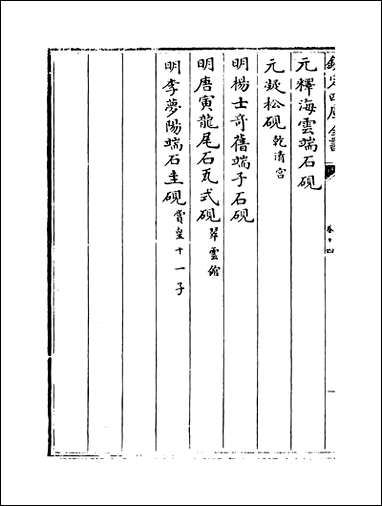 欽定四庫全書
卷十四
元釋海雲端石硯
元凝松硯乾清宮
明楊士奇舊端子石硯
明唐寅龍尾石瓦式硯翠雲館
明李夢陽端石圭硯賞皇十一子